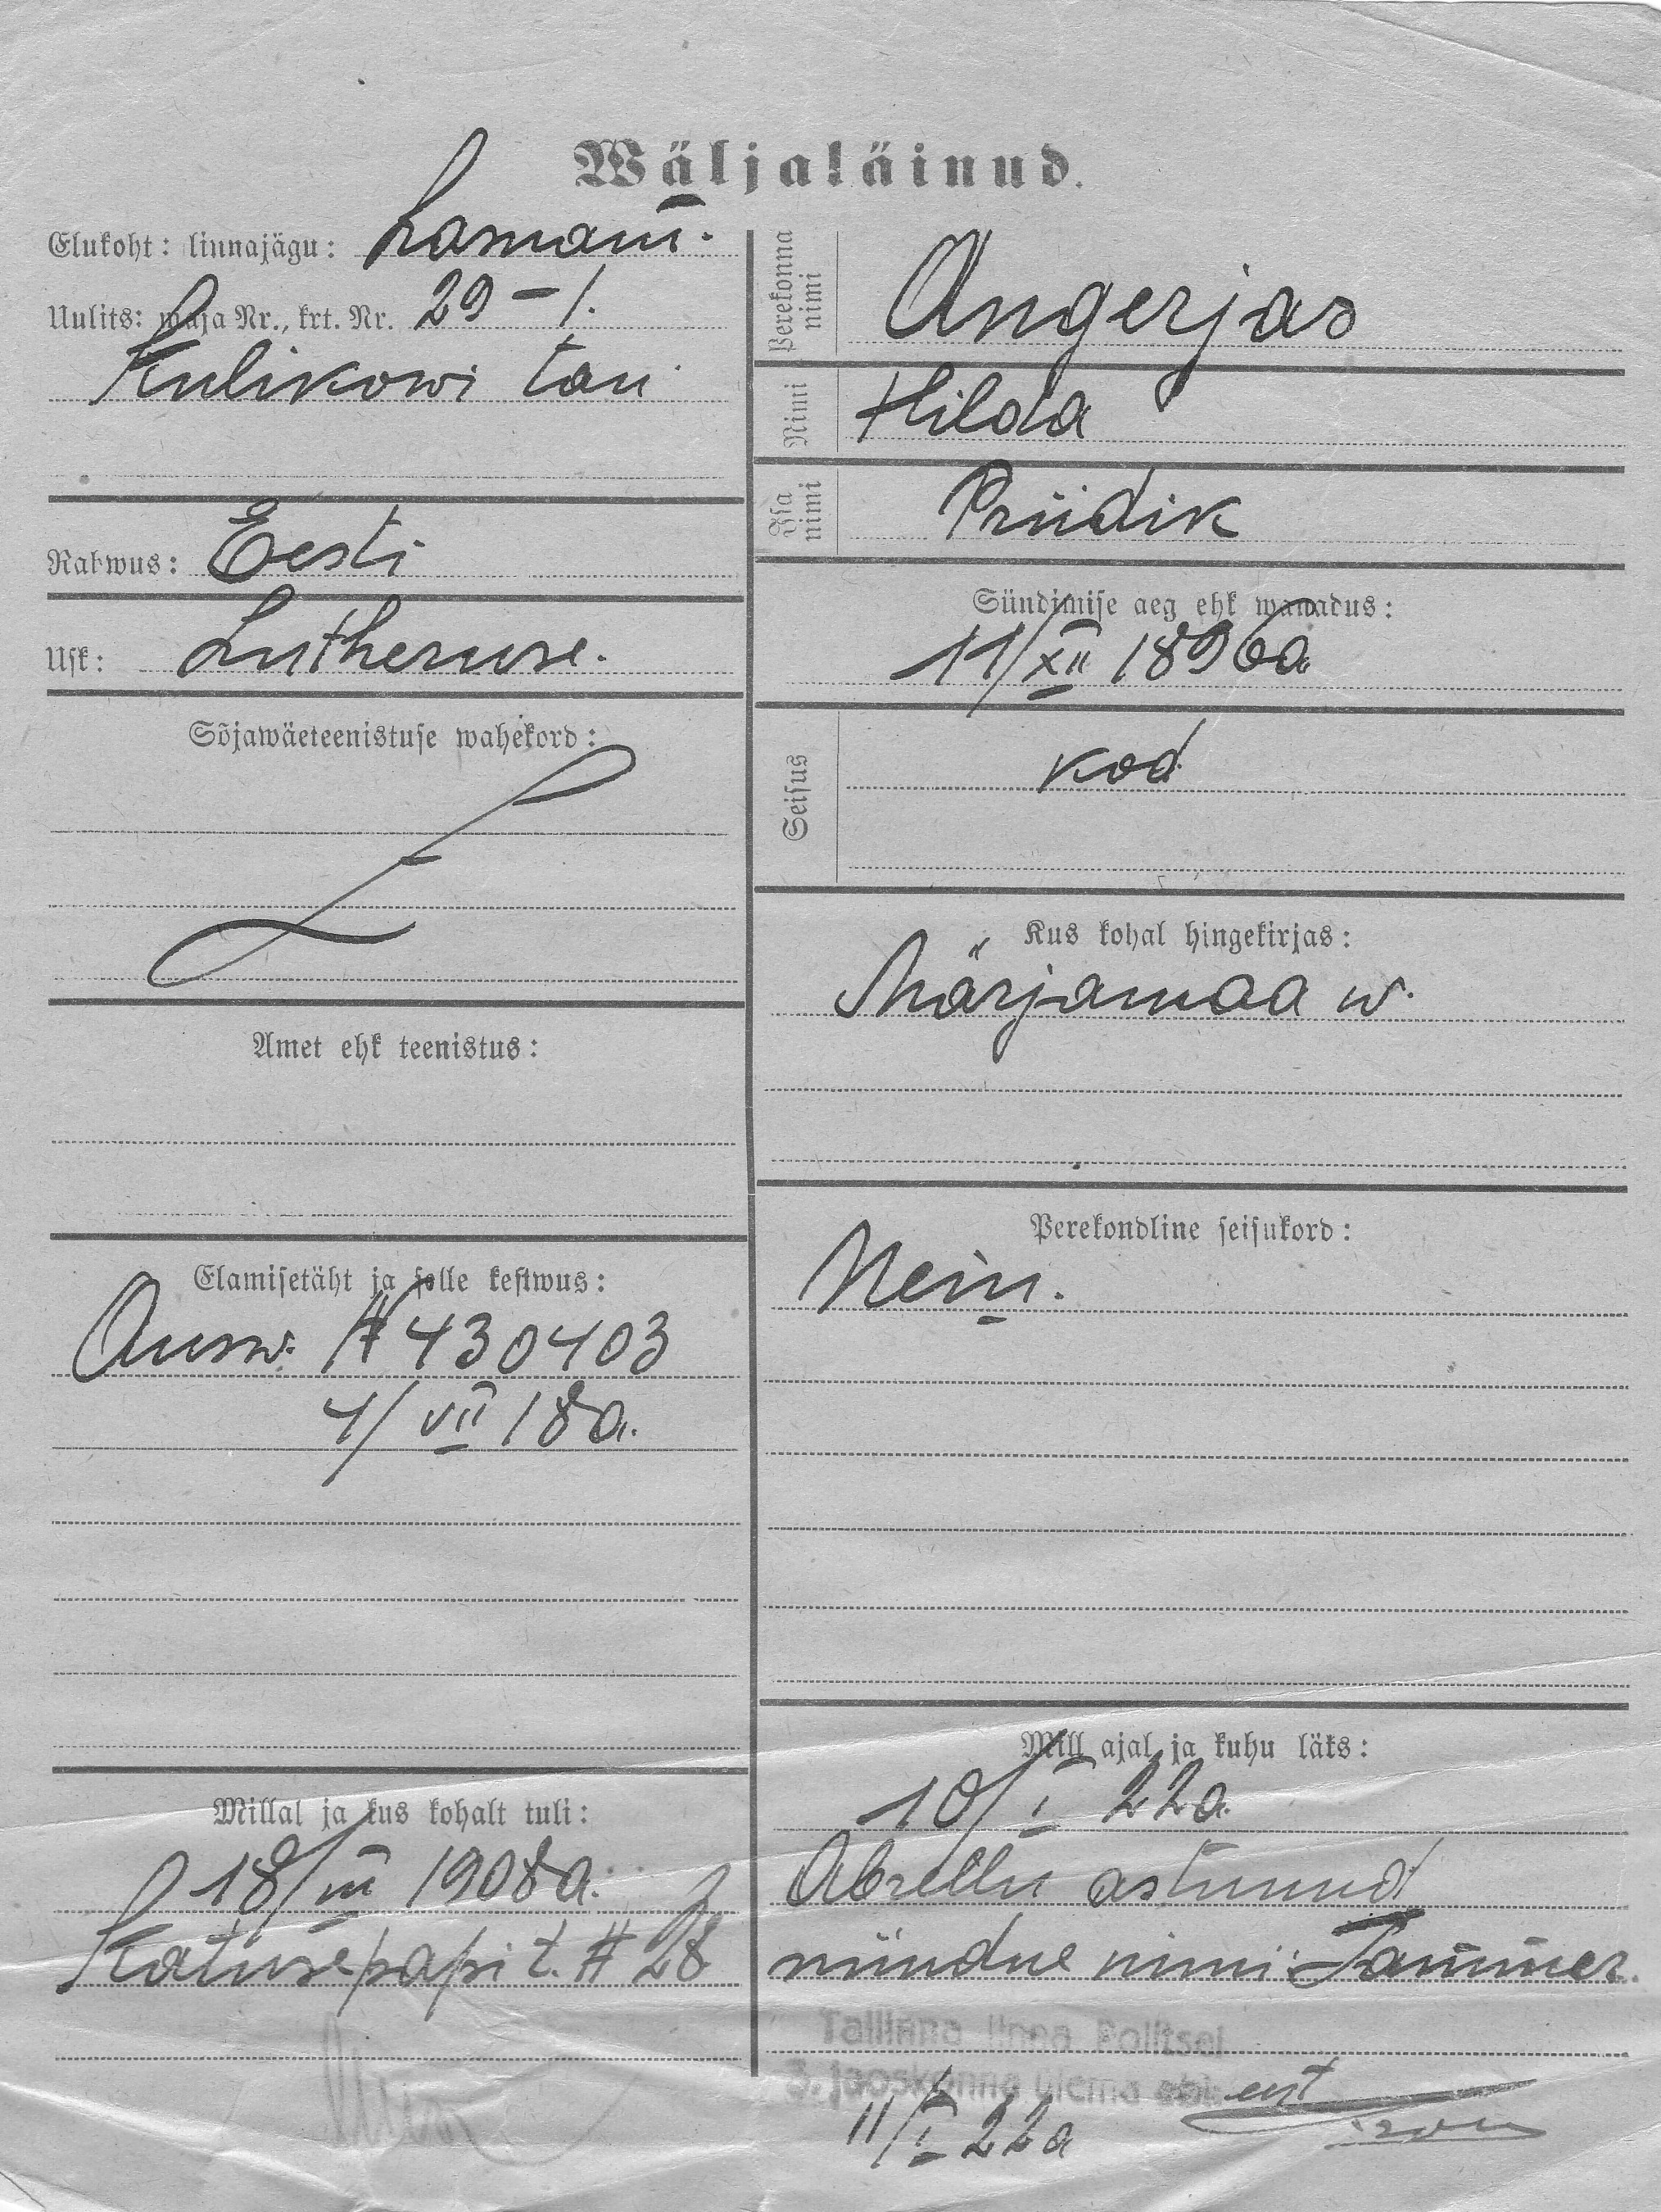 Wäljaläinud.
Elukoht: linnajägu: Lasnam.
Uulits: maja Nr., krt. Nr. 29 – 1.
Kulikowi tän.
Rahwus: Eesti
Usk: Lutheruse.
Sõjawäeteenistuse wahekord:
Amet ehk teenistus:
Elamisetäht ja selle kestwus:
Ausw. # 430403
4/VII 18 a.
Millal ja kus kohalt tuli:
18/III 1908 a.
Katusepapi t. # 28
Perekonna nimi Angerjas
Nimi Hilda
Isa nimi Priidik
Sündimise aeg ehk wanadus:
11/XII 1896 a.
Seisus kod.
Kus kohal hingekirjas:
Märjamaa w.
Perekondline seisukord:
Nein.
Mill ajal ja kuhu läks:
10/I 22 a.
Abiellu astunud
nüüdne nimi: Tammer.
Tallinna linna Politsei
3. jaoskonna ülema abi:
11/I 22 a